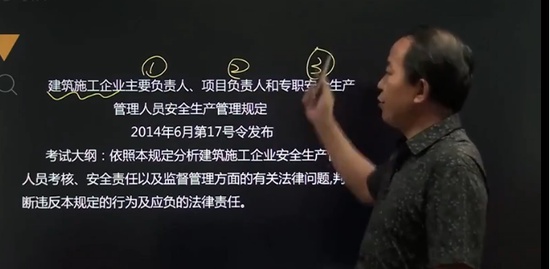 ① ② ③
建筑施工企业主要负责人、项目负责人和专职安 生产
管理人员安全生产管理规定
2014年6月第17号令发布
考试大纲：依照本规定分析建筑施工企业安全生产
人员考核、安全责任以及监督管理方面的有关法律问题,判
断违反本规定的行为及应负的法律责任。